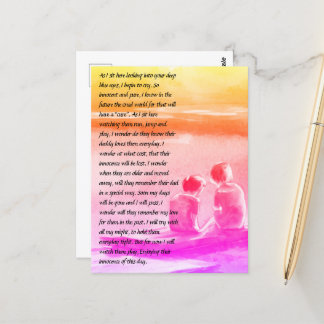 As I sit here looking into your deep
blue eyes, I begin to cry. So
innocent and pure, I know in the
future the cruel world for that will
have a "cure". As I sit here
watching them run, jump and
play, I wonder do they know their
daddy loves them everyday, I
wonder at what cost, that their
innocence will be lost, I wonder
when they are older and moved
away, will they remember their dad
in a special way. Soon my days
will be gone and I will pass, I
wonder will they remember my love
for them in the past, I will try with
all my might, to hold them
everyday tight. But for now I will
watch them play, Enjoying their
innocence of this day.